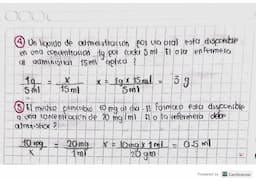 ④ Un liquido de administración por via oral esta disponible
en una concentración 1g por cada 5 ml. El o la enfermera
al administrar 15 ml aplica?
1g = x x = 1g x 15 ml = 3 g
5 ml 15 ml 5 ml
⑤ El medico prescribe 10 mg al dia. El farmaco esta disponible
a una concentración de 20 mg/ml. El o la enfermera debe
administrar?
10 mg = 20 mg x = 10 mg x 1 ml = 0.5 ml
x 1 ml 20 gm
Powered by CamScanner